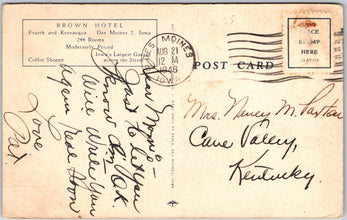 BROWN HOTEL
Fourth and Keosauqua Des Moines 2, Iowa
244 Rooms
Moderately Priced
Iowa's Largest Garage
Coffee Shoppe across the Street
DES MOINES
AUG 21
12 M
1946
IOWA
POST CARD
PLACE
STAMP
HERE
Dear Mom –
Just to let you
know I'm OK
will write you
again
Love
Pat
Mrs. Nancy M.
Cane Valley,
Kentucky.